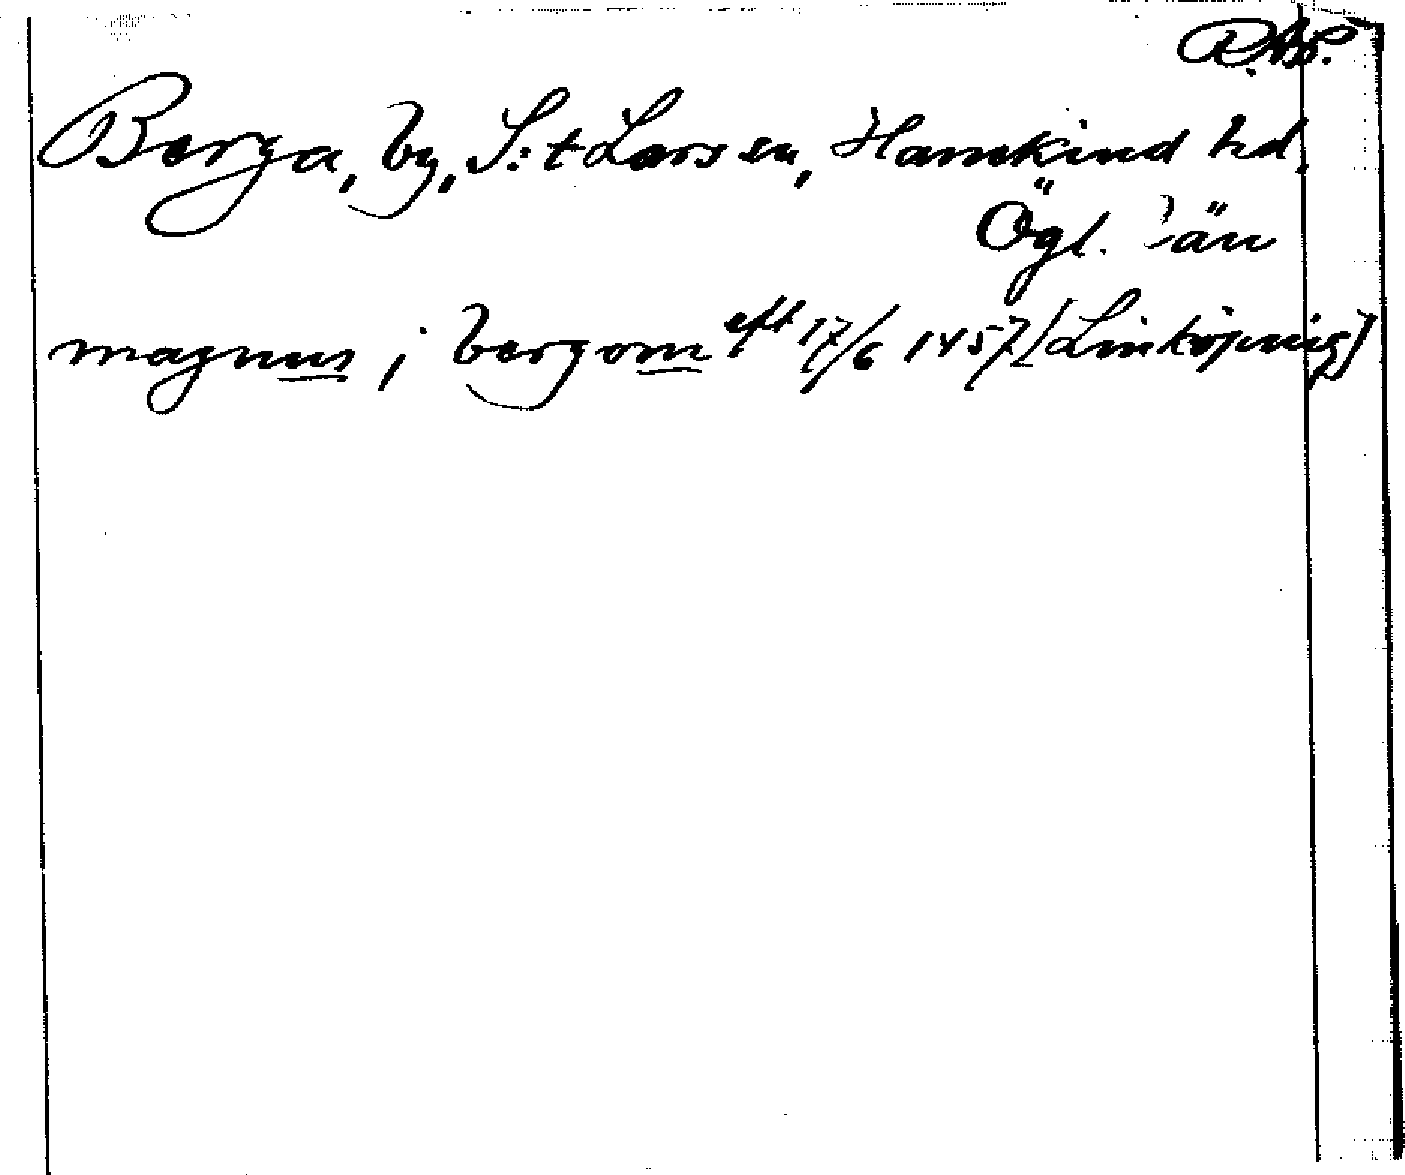 Berga, by, S:t Lars sn, Hanekind hd.
Ögl. län
magnus j bergom eft 17/6 1457 (Linköping)